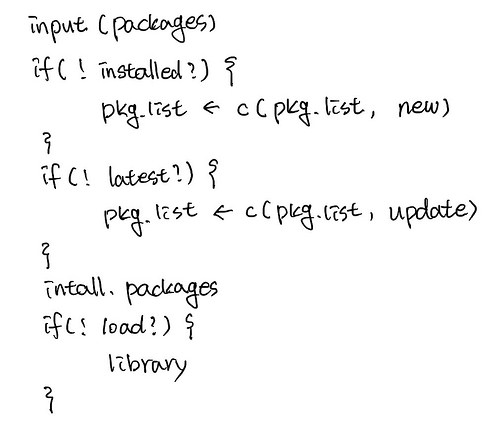 input (packages)
if(! installed?) {
pkg.list ← c(pkg.list, new)
}
if(! latest?) {
pkg.list ← c(pkg.list, update)
}
intall.packages
if(! load?) {
library
}